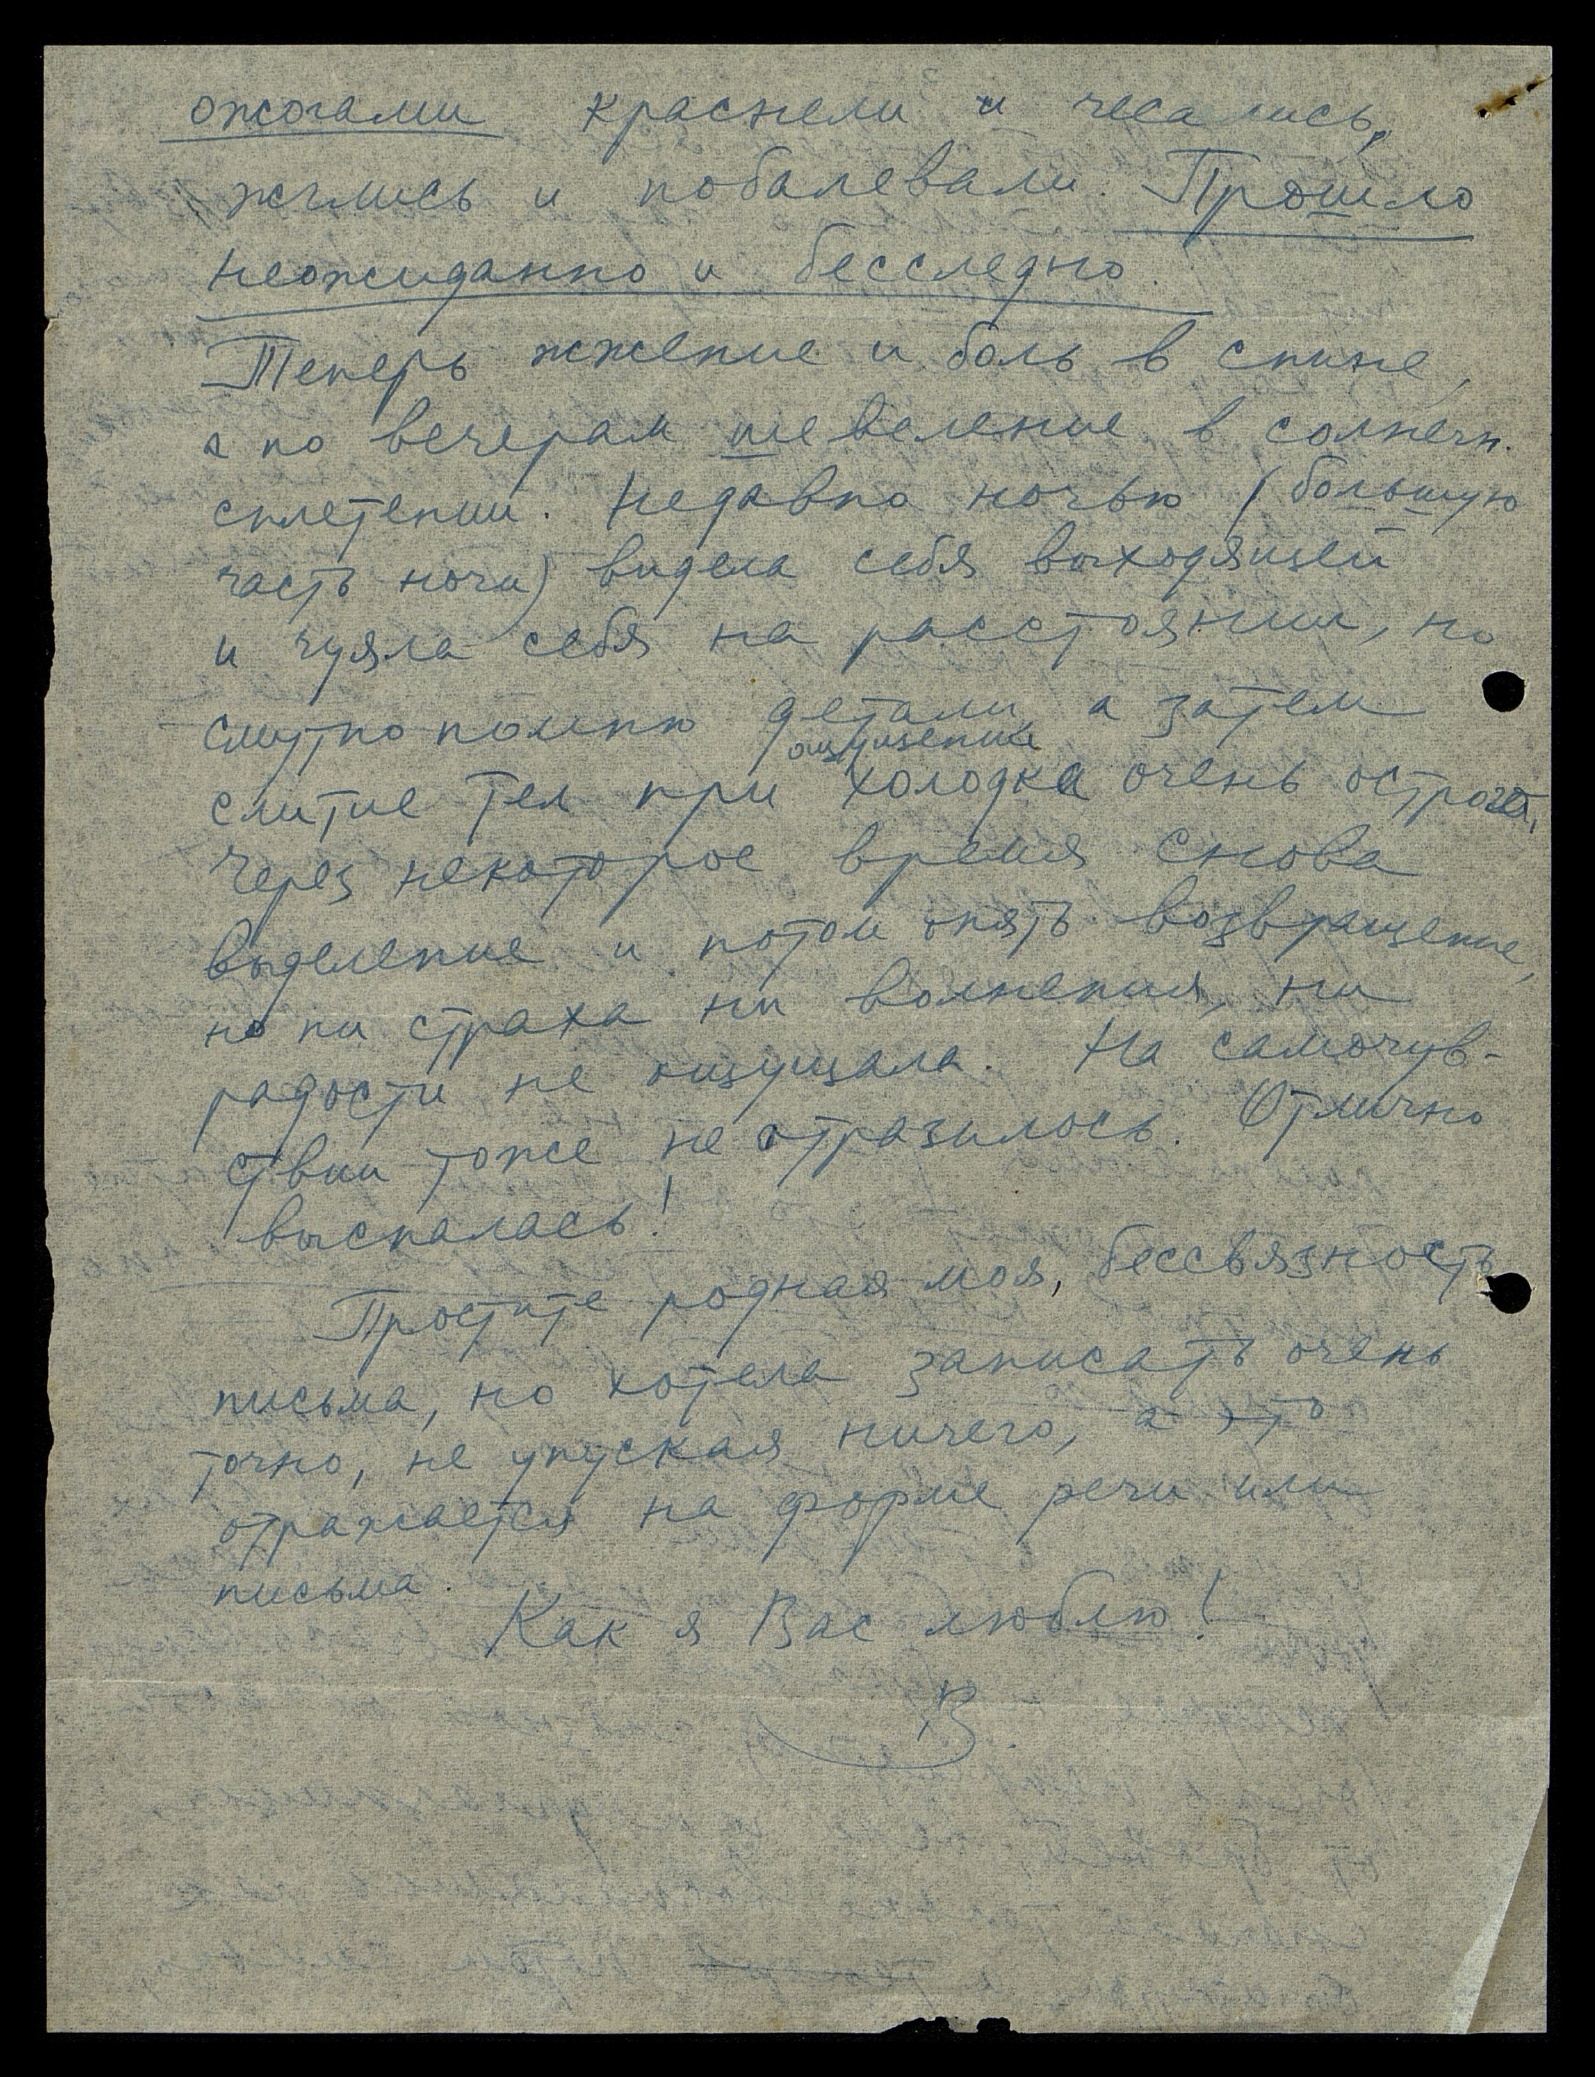 ожогами краснели и чесались,
жглись и побаливали. Прошло
неожиданно и бесследно.
Теперь жжение и боль в спине,
а по вечерам шевеление в солнечн.
сплетении. Недавно ночью (большую
часть ночи) видела себя выходящей
и чуяла себя на расстоянии, но
смутно помню детали, а затем
ощущении
слитие тел при холодка очень остро
Через некоторое время снова
выделение и потом опять возвращение,
но ни страха ни волнения, ни
радости не ощущала. На самочув-
ствии тоже не отразилось. Отлично
выспалась!
Простите родная моя, бессвязность
письма, но хотела записать очень
точно, не упуская ничего, а это
отражается на форме речи или
письма.
Как я Вас люблю!
В.